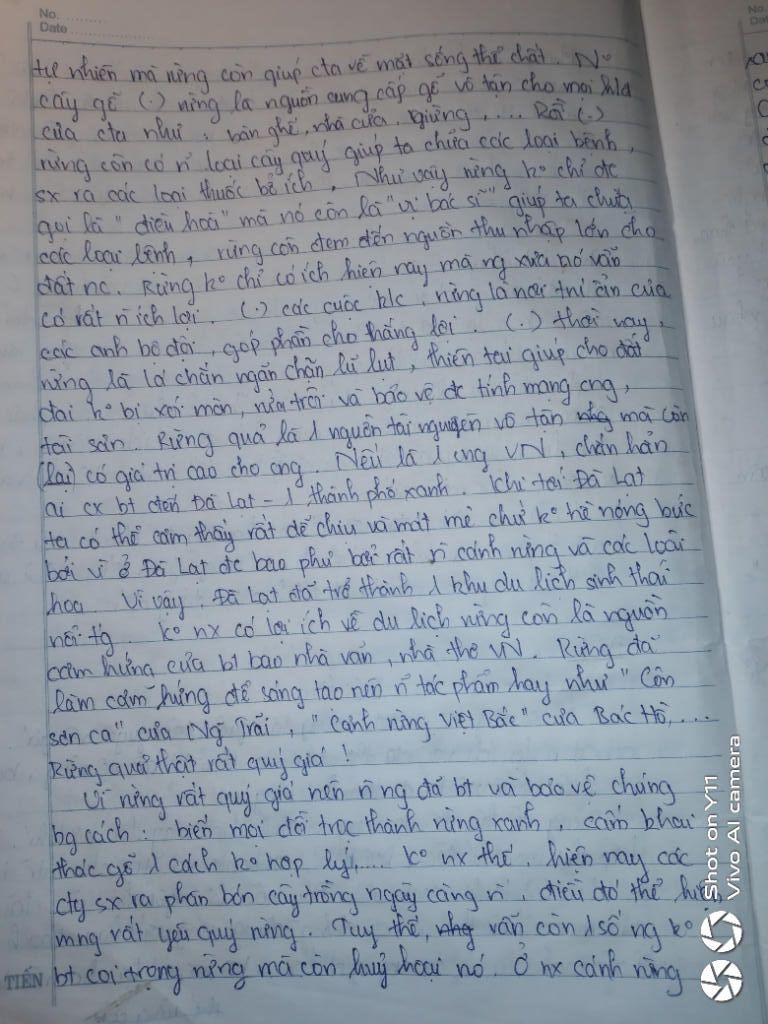 No.
Date
tự nhiên mà rừng còn giúp cta về mặt sống thể chất. Nº
cây gỗ (.) rừng là nguồn cung cấp gỗ vô tận cho mọi
của cta như : bàn ghế, nhà cửa, giường, .... Rồi (.)
rừng còn có n̄ loại cây quý giúp ta chữa các loại bệnh,
sx ra các loại thuốc bổ ích. Như vậy rừng kº chỉ đc
gọi là "điều hoà" mà nó còn là "vị bác sĩ" giúp ta chữa
các loại bệnh, rừng còn đem đến nguồn thu nhập lớn cho
đất nc. Rừng kº chỉ có ích hiện nay mà ng xưa nó vẫn
có rất n̄ ích lợi. (.) các cuộc k/c, rừng là nơi trú ẩn của
các anh bộ đội, góp phần cho thắng lợi. (.) thời nay,
rừng là lá chắn ngăn chặn lũ lụt, thiên tai giúp cho đất
đai kº bị xói mòn, rửa trôi và bảo vệ đc tính mạng cng,
tài sản. Rừng quả là 1 nguồn tài nguyên vô tận nhg mà còn
(lại) có giá trị cao cho cng. Nếu là 1 cng VN, chắn hản
ai cx bt đến Đà Lạt - 1 thành phố xanh. Khi tới Đà Lạt
ta có thể cảm thấy rất dễ chịu và mát mẻ chứ kº hề nóng bức
bởi vì ở Đà Lạt đc bao phủ bởi rất n̄ cánh rừng và các loài
hoa. Vì vậy, Đà Lạt đã trở thành 1 khu du lịch sinh thái
nổi tg. kº nx có lợi ích về du lịch rừng còn là nguồn
cảm hứng của bt bao nhà văn, nhà thơ VN. Rừng đã
làm cảm hứng để sáng tạo nên n̄ tác phẩm hay như "Côn
sơn ca" của Ng̃ Trãi, "Cảnh rừng Việt Bắc" của Bác Hồ,....
Rừng quả thật rất quý giá !
Vì rừng rất quý giá nên n̄ ng đã bt và bảo vệ chúng
bg cách : biến mọi đồi trọc thành rừng xanh, cấm khai
thác gỗ 1 cách kº hợp lý,.... kº nx thế, hiện nay các
cty sx ra phân bón cây trồng ngày càng n̄, điều đó thể hiện
mng rất yêu quý rừng. Tuy thế, nhg vẫn còn 1 số ng kº
bt coi trọng rừng mà còn huỷ hoại nó. Ở nx cánh rừng
TIẾN
Shot on Y11
Vivo AI camera
No.
Da